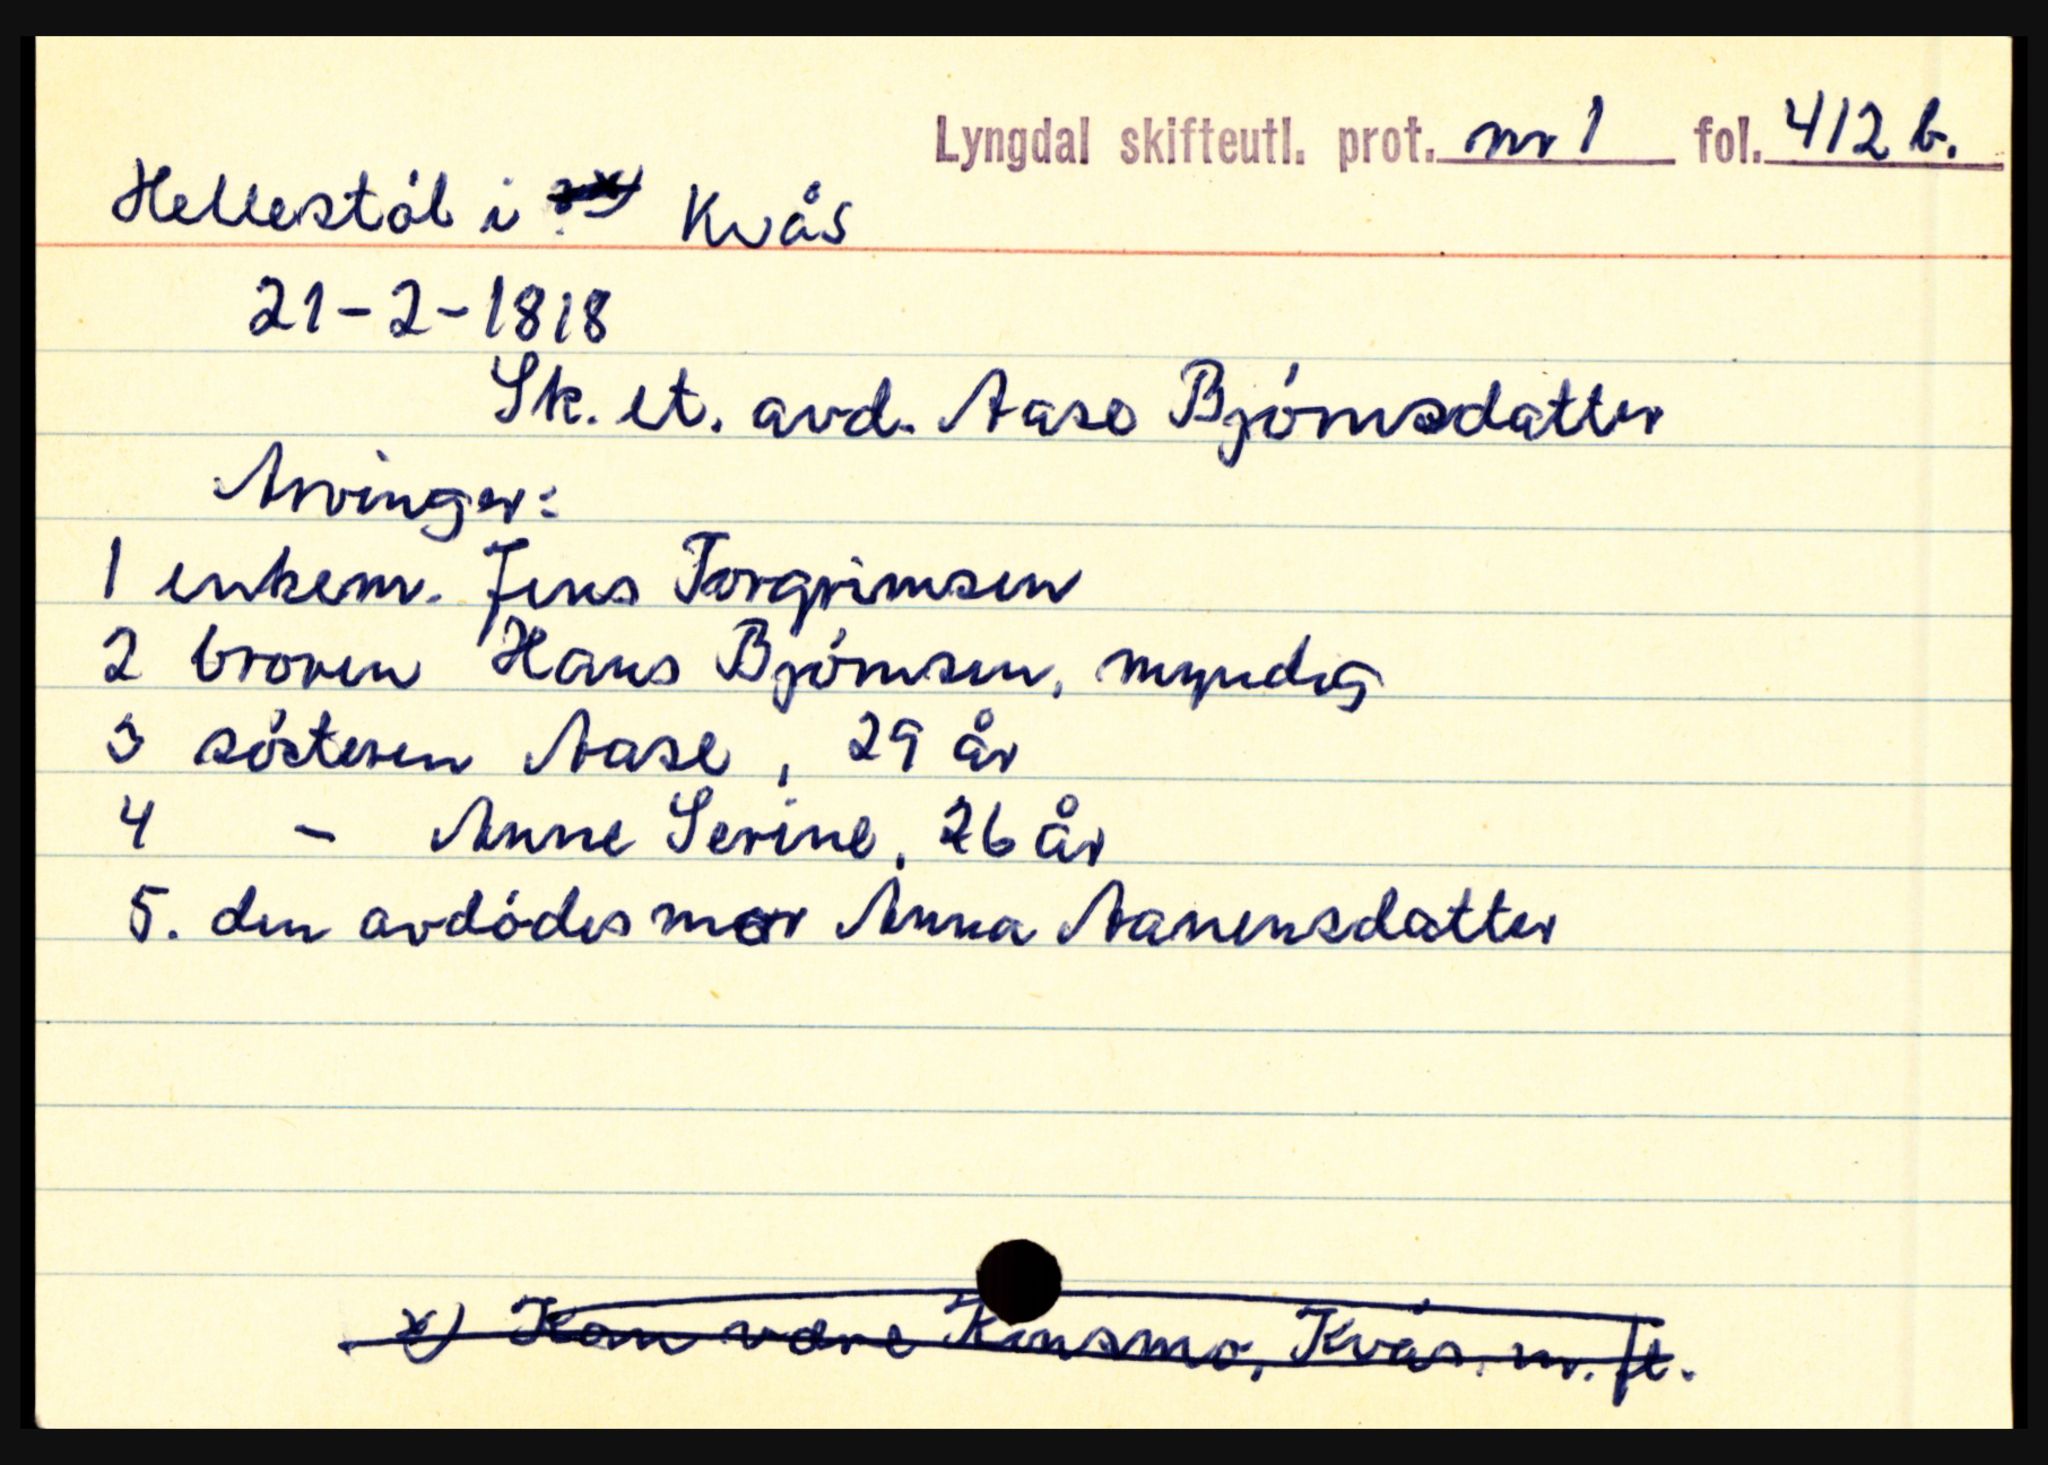 Lyngdal skifteutl. prot. nr 1 fol. 412 b.
Hellestøl i Kvås
21-2-1818
Sk. et. avd. Aase Bjørnsdatter
Arvinger:
1 enkem. Jens Torgrimsen
2 broren Hans Bjørnsen, myndig
3 søsteren Aase, 29 år
4 - Anne Serine, 26 år
5. den avdødes mor Anna Aanensdatter
x) Kan være Kinsmo, Kvås, m. fl.